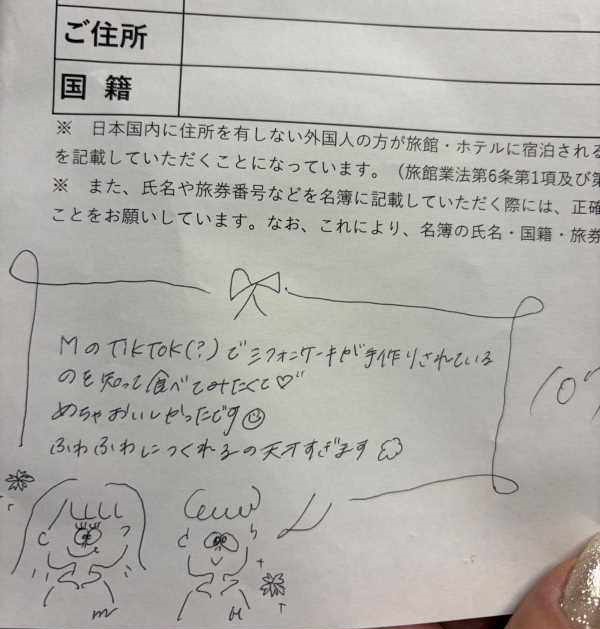 ご住所
国 籍
※ 日本国内に住所を有しない外国人の方が旅館・ホテルに宿泊される
を記載していただくことになっています。（旅館業法第6条第1項及び第
※ また、氏名や旅券番号などを名簿に記載していただく際には、正確
ことをお願いしています。なお、これにより、名簿の氏名・国籍・旅券
MのTikTok(?)でシフォンケーキが手作りされている
のを知って食べてみたくて♡
めちゃおいしかったです☺
ふわふわにつくれるの天才すぎます
m
H